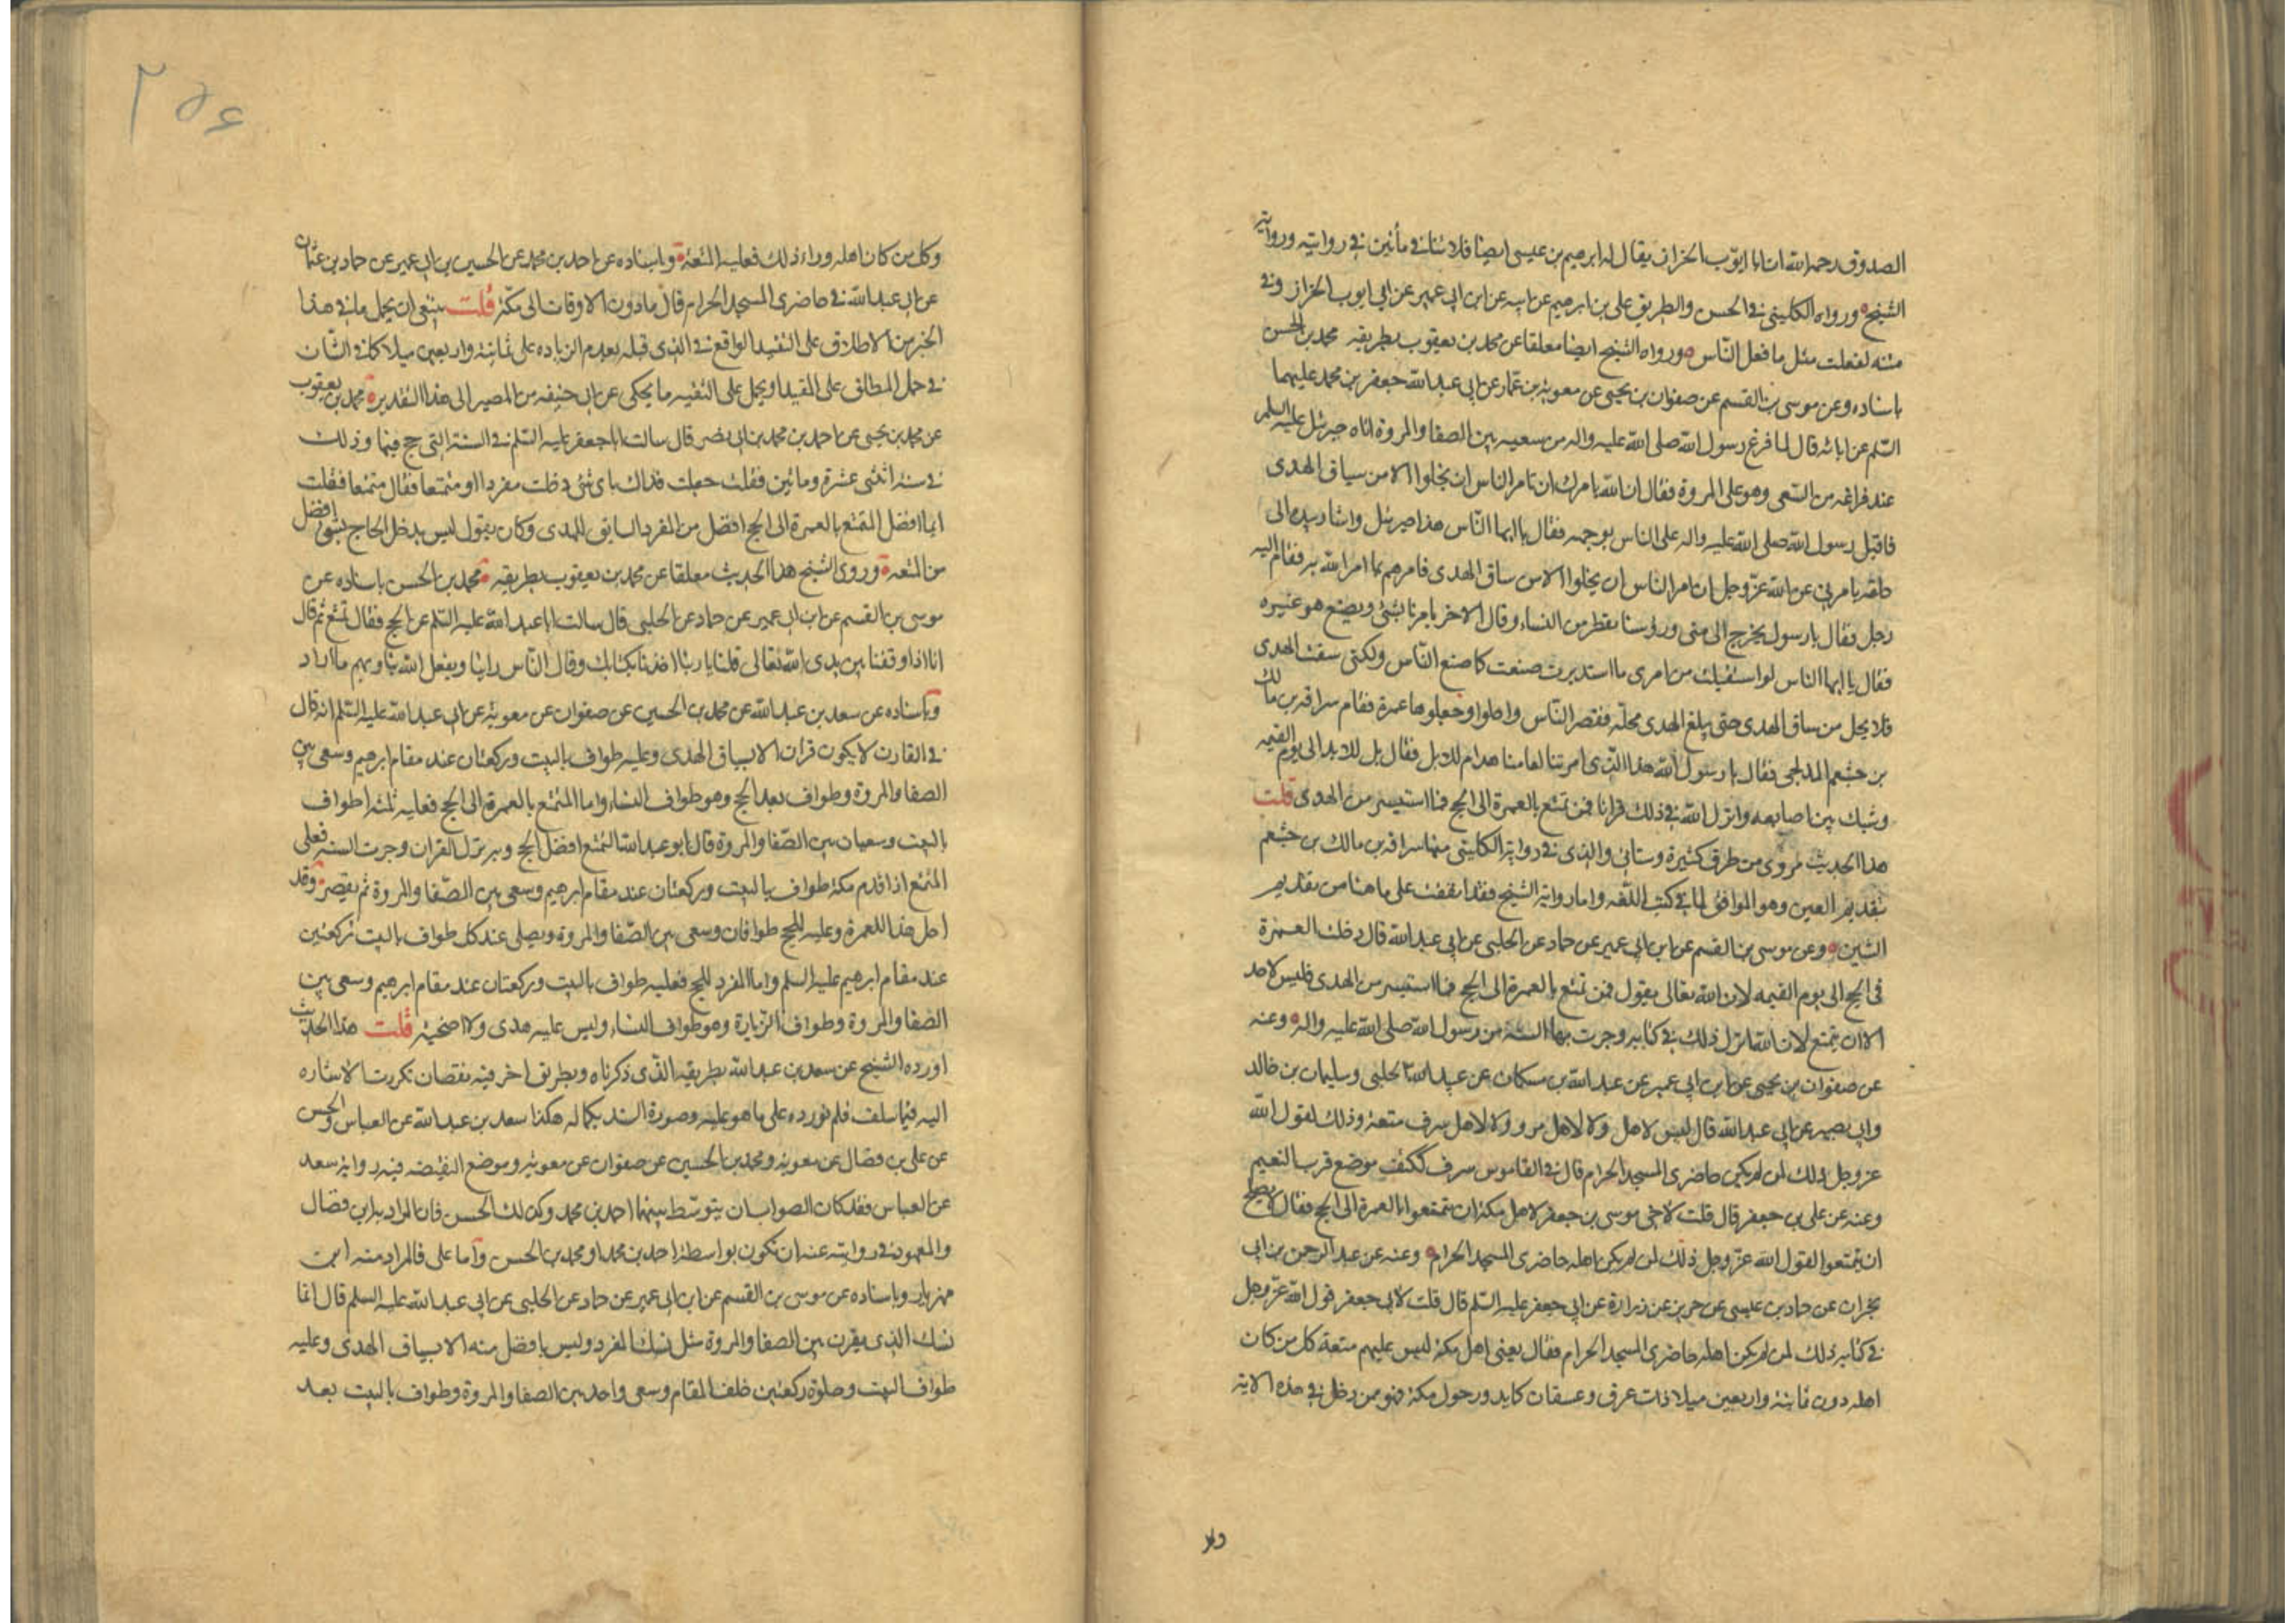 الصدوق رحمه الله ان ابا ايوب الخزاز يقال له ابرهيم بن عيسى ايضا فلا تنافي مأتين في روايته ورواية
الشيخ ورواه الكليني في الحسن والطريق علي بن ابرهيم عن ابيه عن ابن ابي عمير عن ابي ايوب الخزاز وفي
متنه لفعلت مثل ما فعل الناس ورواه الشيخ ايضا معلقا عن محمد بن يعقوب بطريقه محمد بن الحسن
باسناده وعن موسى بن القسم عن صفوان بن يحيى عن معوية بن عمار عن ابي عبد الله جعفر بن محمد عليهما
السلم عن ابائه قال لما فرغ رسول الله صلى الله عليه واله من سعيه بين الصفا والمروة اتاه جبرئيل عليه السلم
عند فراغه من السعي وهو على المروة فقال ان الله يامرك ان تامر الناس ان يحلوا الا من سياق الهدى
فاقبل رسول الله صلى الله عليه واله على الناس بوجهه فقال يا ايها الناس هذا جبرئيل واشار بيده الى
خلفه يامرني عن الله عز وجل ان امر الناس ان يحلوا الا من ساق الهدى فامرهم بما امر الله به فقام اليه
رجل فقال يا رسول يخرج الى منى ورؤسنا تقطر من النساء وقال الاخر يامرنا بشئ ويصنع هو غيره
فقال يا ايها الناس لو استقبلت من امرى ما استدبرت صنعت كما صنع الناس ولكني سقت الهدى
فلا يحل من ساق الهدى حتى يبلغ الهدى محله فقصر الناس واحلوا وجعلوها عمرة فقام سراقة بن مالك
بن جشعم المدلجى فقال يا رسول الله هذا الذى امرتنا لعامنا هذا ام للابد فقال بل للابد الى يوم القيمه
وشبك بين اصابعه وانزل الله في ذلك قرانا فمن تمتع بالعمرة الى الحج فما استيسر من الهدى قلت
هذا الحديث مروى من طرق كثيرة وستاتي والذى في رواية الكليني منها سراقة بن مالك بن جشعم
بتقديم العين وهو الموافق لما في كتب اللغه واما رواية الشيخ فقد اتفقت على ما هنا من تقديم
الشين وعن موسى بن القسم عن ابن ابي عمير عن حماد عن الحلبي عن ابي عبد الله قال دخلت العمرة
في الحج الى يوم القيمه لان الله تعالى يقول فمن تمتع بالعمرة الى الحج فما استيسر من الهدى فليس لاحد
الا ان يتمتع لان الله انزل ذلك في كتابه وجرت بها السنة من رسول الله صلى الله عليه واله وعنه
عن صفوان بن يحيى عن ابن ابي عمير عن عبد الله بن مسكان عن عبيد الله الحلبي وسليمان بن خالد
وابي بصير عن ابي عبد الله قال ليس لاهل ولا لاهل مرو ولا لاهل سرف متعة وذلك لقول الله
عز وجل ذلك لمن لم يكن حاضرى المسجد الحرام قال في القاموس سرف ككتف موضع قرب التنعيم
وعنه عن علي بن جعفر قال قلت لاخي موسى بن جعفر لاهل مكة ان يتمتعوا بالعمرة الى الحج فقال لا يصلح
ان يتمتعوا لقول الله عز وجل ذلك لمن لم يكن اهله حاضرى المسجد الحرام وعنه عن عبد الرحمن بن ابي
نجران عن حماد بن عيسى عن حريز عن زرارة عن ابي جعفر عليه السلم قال قلت لابي جعفر قول الله عز وجل
في كتابه ذلك لمن لم يكن اهله حاضرى المسجد الحرام فقال يعني اهل مكة ليس عليهم متعة كل من كان
اهله دون ثمانية واربعين ميلا ذات عرق وعسفان كما يدور حول مكة فهو ممن دخل في هذه الاية
وكل
۲۵۶
وكل من كان اهله وراء ذلك فعليه المتعة وباسناده عن احمد بن محمد عن الحسين بن ابي عمير عن حماد بن عثمان
عن ابي عبد الله في حاضرى المسجد الحرام قال ما دون الاوقات الى مكة قلت ينبغي ان يحمل ما في هذا
الخبر من الاطلاق على التقييد الواقع في الذى قبله بعدم الزياده على ثمانية واربعين ميلا كما في الشان
في حمل المطلق على المقيد او يحمل على التقيه ما يحكى عن ابي حنيفه من المصير الى هذا التقدير محمد بن يعقوب
عن محمد بن يحيى عن احمد بن محمد بن ابي نصر قال سالت ابا جعفر عليه السلم في السنة التي حج فيها وذلك
في سنة اثنتى عشرة ومائتين فقلت جعلت فداك باى شئ دخلت مفردا او متمتعا فقال متمتعا فقلت
ايما افضل المتمتع بالعمرة الى الحج افضل من المفرد السايق للهدى وكان يقول ليس يدخل الحاج بشئ افضل
من المتعه وروى الشيخ هذا الحديث معلقا عن محمد بن يعقوب بطريقه محمد بن الحسن باسناده عن
موسى بن القسم عن ابن ابي عمير عن حماد عن الحلبي قال سالت ابا عبد الله عليه السلم عن الحج فقال تمتع ثم قال
انا اذا وقفنا بين يدى الله تعالى قلنا يا ربنا اخذنا بكتابك وقال الناس راينا ويفعل الله بنا وبهم ما اراد
وباسناده عن سعد بن عبد الله عن محمد بن الحسين عن صفوان عن معوية عن ابي عبد الله عليه السلم انه قال
في القارن لا يكون قران الا بسياق الهدى وعليه طواف بالبيت وركعتان عند مقام ابرهيم وسعى بين
الصفا والمروة وطواف بعد الحج وهو طواف النساء واما المتمتع بالعمرة الى الحج فعليه ثلثه اطواف
بالبيت وسعيان بين الصفا والمروة قال ابو عبد الله التمتع افضل الحج وبه نزل القران وجرت السنه فعلى
المتمتع اذا قدم مكة طواف بالبيت وركعتان عند مقام ابرهيم وسعى بين الصفا والمروة ثم يقصر وقد
احل هذا للعمرة وعليه للحج طوافان وسعى بين الصفا والمروة ويصلى عند كل طواف بالبيت ركعتين
عند مقام ابرهيم عليه السلم واما المفرد للحج فعليه طواف بالبيت وركعتان عند مقام ابرهيم وسعى بين
الصفا والمروة وطواف الزيارة وهو طواف النساء وليس عليه هدى ولا اضحية قلت هذا الحديث
اورده الشيخ عن سعد بن عبد الله بطريقه الذى ذكرناه وبطريق اخر فيه نقصان تكررت الاشاره
اليه فيما سلف فلم نورده على ما هو عليه وصورة السند بكماله هكذا سعد بن عبد الله عن العباس والحسن
عن علي بن فضال عن معوية ومحمد بن الحسين عن صفوان عن معوية وموضع النقيصه فيه رواية سعد
عن العباس فقد كان الصواب ان يتوسط بينهما احمد بن محمد وكذلك الحسن فان المراد به ابن فضال
والمعهود في روايته عنه ان تكون بواسطة احمد بن محمد او محمد بن الحسن واما على فالمراد منه ابن
مهزيار وباسناده عن موسى بن القسم عن ابن ابي عمير عن حماد عن الحلبي عن ابي عبد الله عليه السلم قال انما
نسك الذى يقرن بين الصفا والمروة مثل نسك المفرد وليس بافضل منه الا بسياق الهدى وعليه
طواف البيت وصلوة ركعتين خلف المقام وسعى واحد بين الصفا والمروة وطواف بالبيت بعد